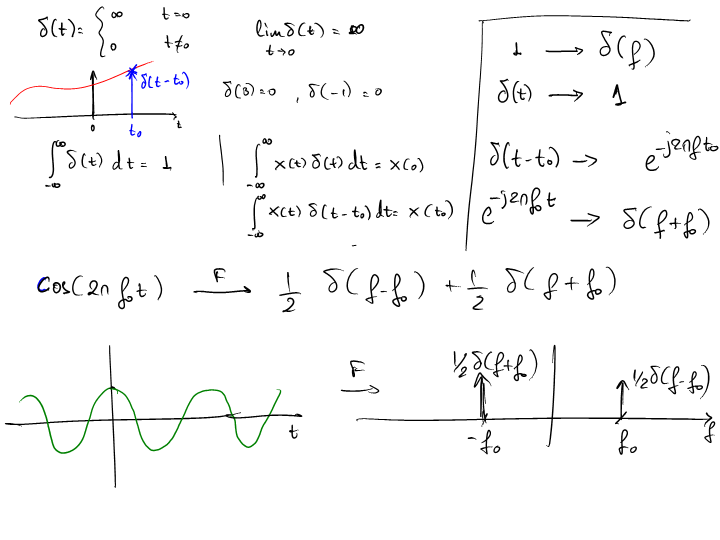 δ(t)= { ∞ t=0
0 t≠0
lim δ(t) = ∞
t→0
δ(t-t₀)
0 t₀ t
δ(3)=0 , δ(-1)=0
∫_{-∞}^{∞} δ(t) dt = 1
∫_{-∞}^{∞} x(t) δ(t) dt = x(0)
∫_{-∞}^{∞} x(t) δ(t-t₀) dt = x(t₀)
1 → δ(f)
δ(t) → 1
δ(t-t₀) → e^{-j2πft₀}
e^{-j2πf₀t} → δ(f+f₀)
cos(2π f₀t) F → 1/2 δ(f-f₀) + 1/2 δ(f+f₀)
t
F →
1/2 δ(f+f₀)
1/2 δ(f-f₀)
-f₀ f₀ f